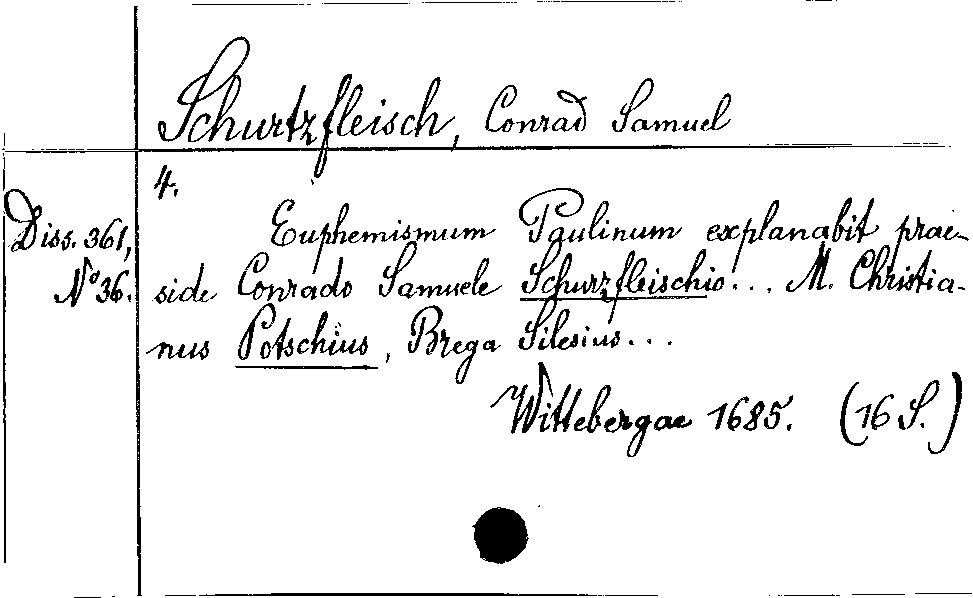 Schurtzfleisch, Conrad Samuel
4.
Diss. 361,
No 36.
Euphemismum Paulinum explanabit prae-
side Conrado Samuele Schurzfleischio... M. Christia-
nus Potschius, Brega Silesius...
Wittebergae 1685. (16 S.)